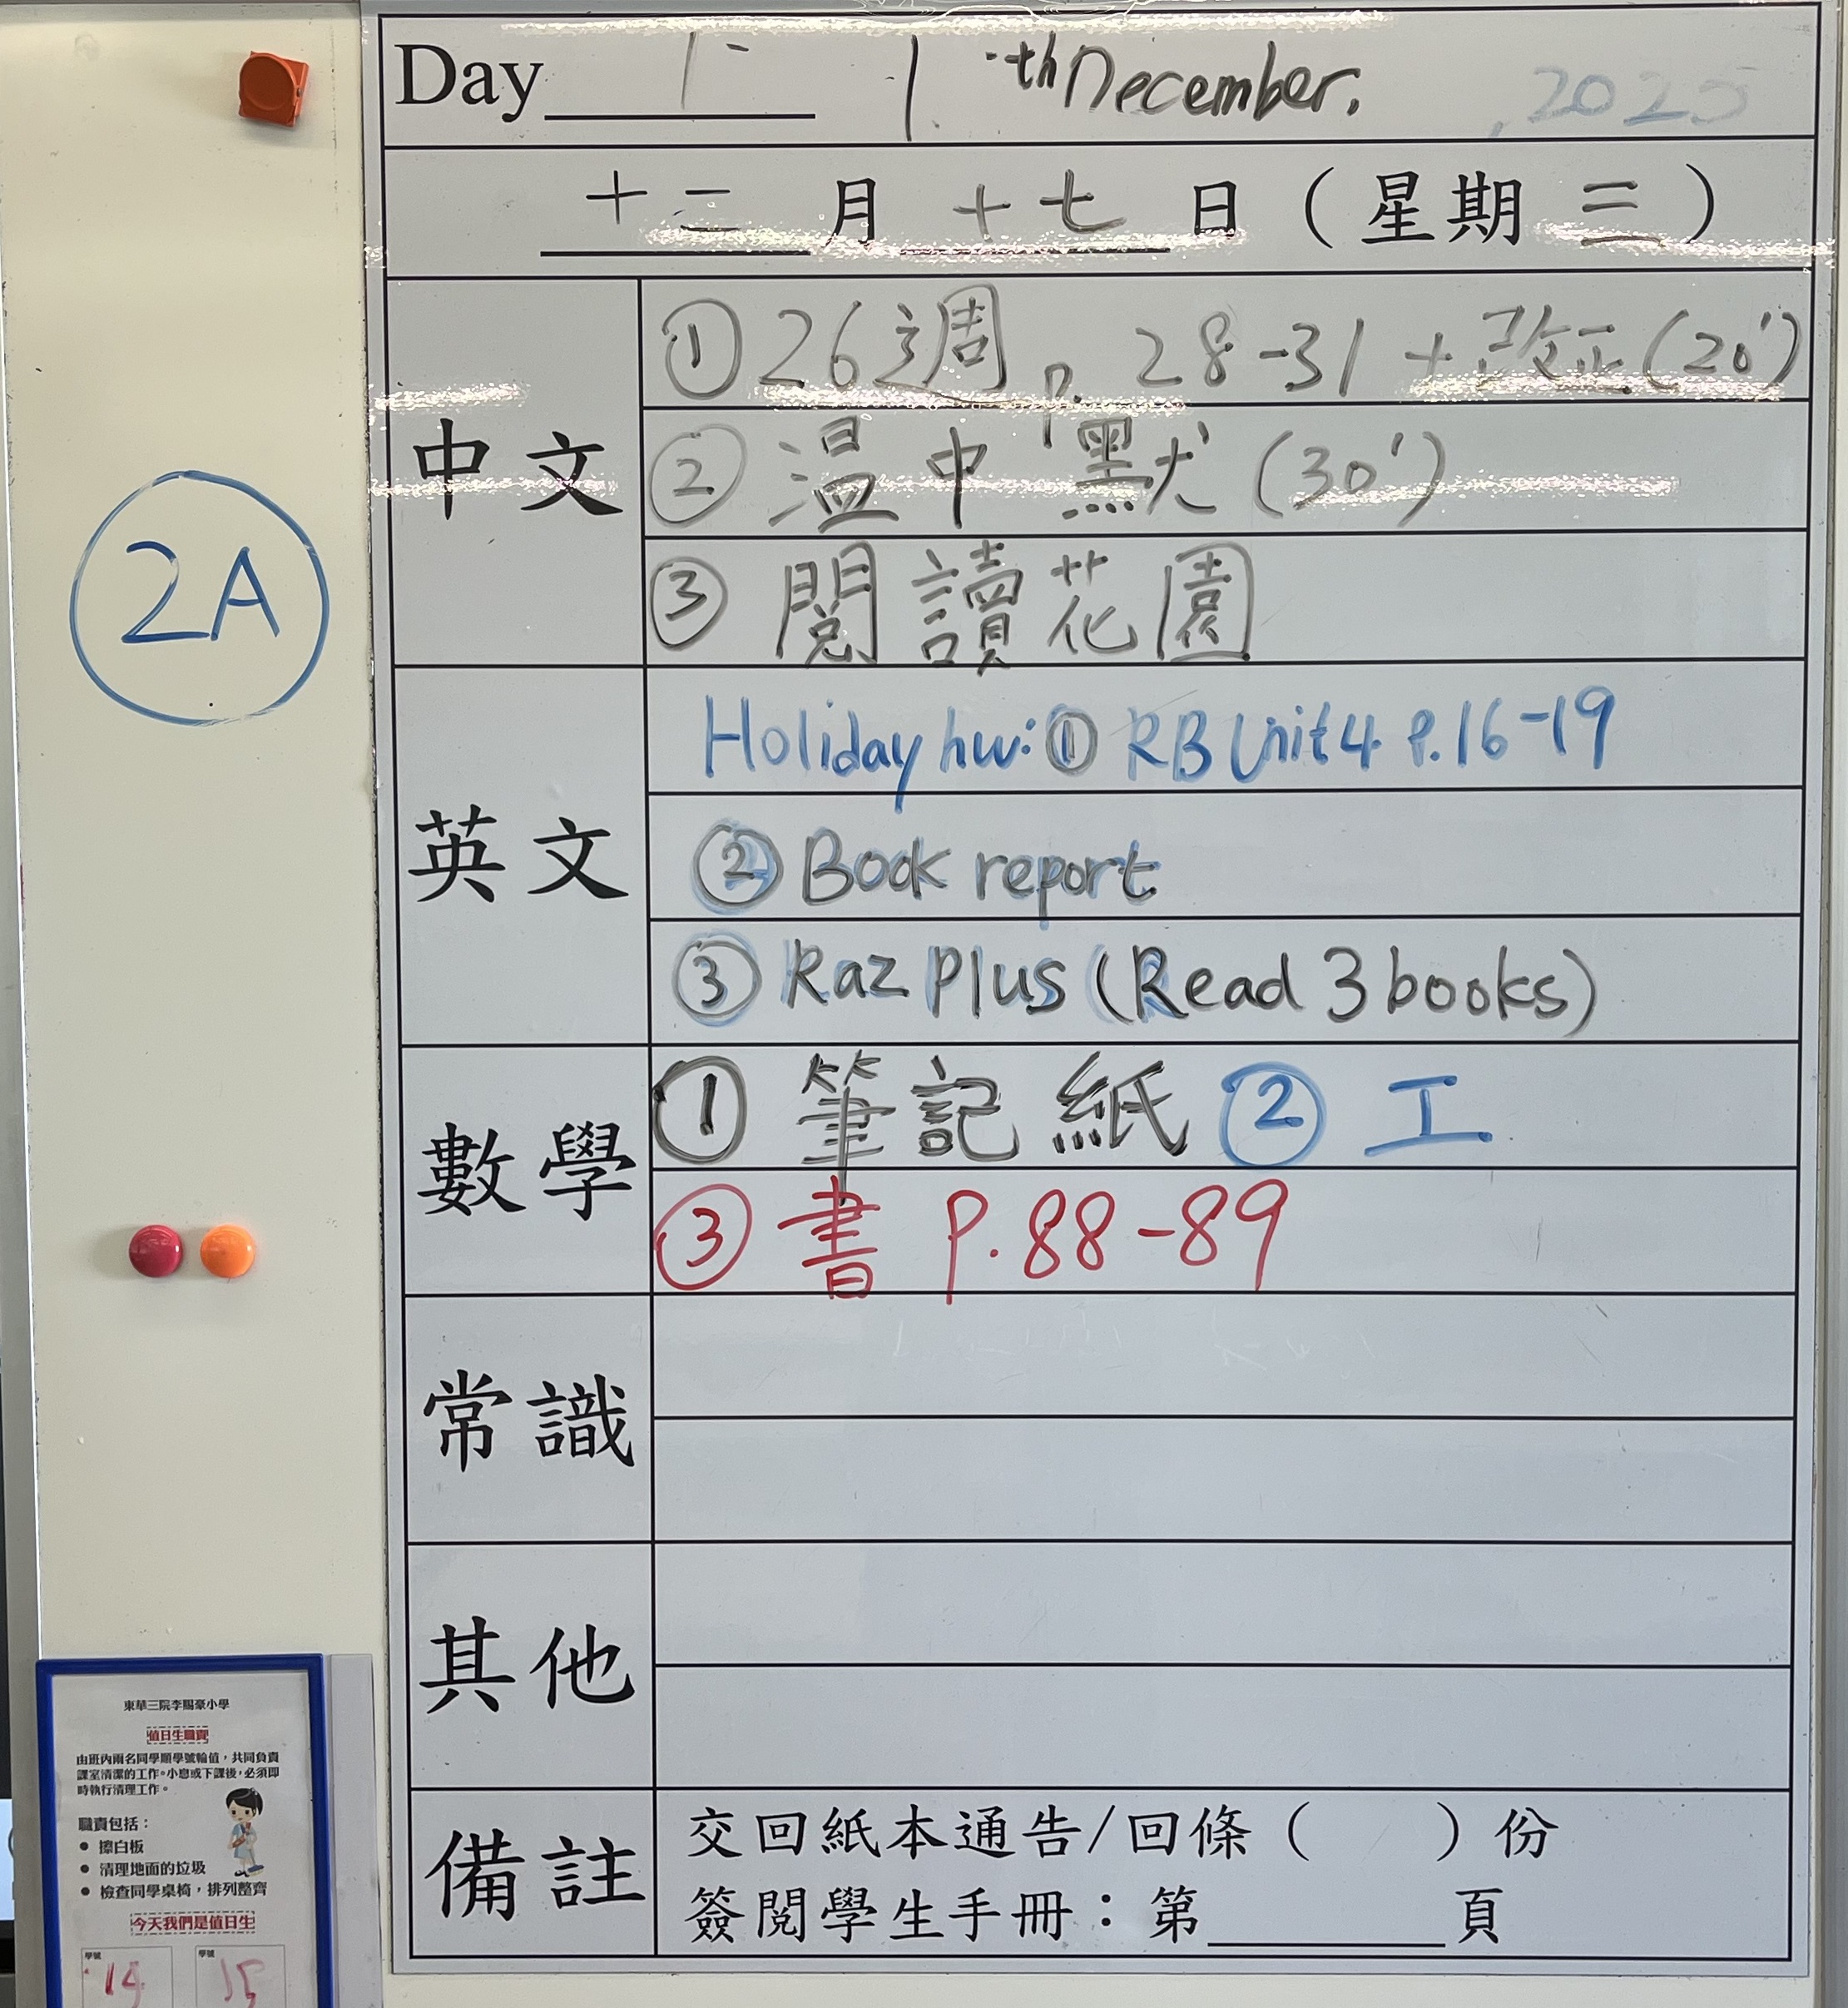 Day 1 1 th December. , 2025
十二 月 十七 日 ( 星期 三 )
中文
① 26週 p. 28-31 + 改正 (20')
② 溫中默 (30')
③ 閱讀花園
2A
英文
Holiday hw: ① RB Unit 4 P.16-19
② Book report
③ Raz Plus (Read 3 books)
數學
① 筆記紙 ② 工
③ 書 P.88-89
常識
其他
備註
交回紙本通告/回條 ( ) 份
簽閱學生手冊：第______頁
東華三院李賜豪小學
值日生職責
由班內兩名同學順學號輪值，共同負責
課室清潔的工作。小息或下課後，必須即
時執行清理工作。
職責包括：
• 擦白板
• 清理地面的垃圾
• 檢查同學桌椅，排列整齊
今天我們是值日生
學號 學號
14 15